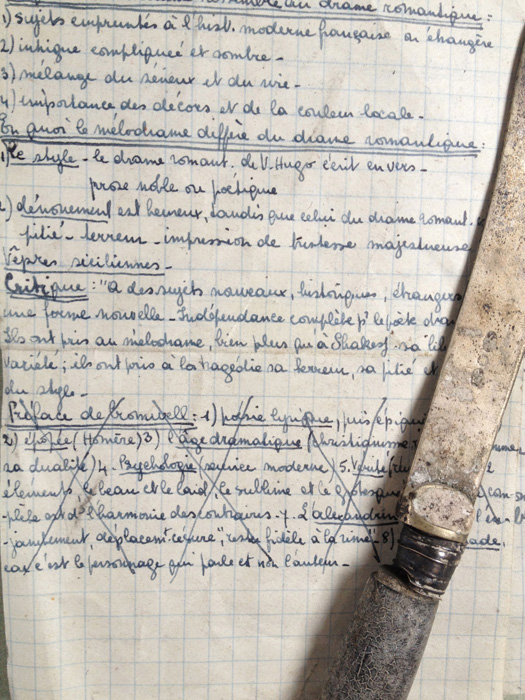 au drame romantique :
1) sujets empruntés à l'hist. moderne française ou étrangère
2) intrigue compliquée et sombre -
3) mélange du sérieux et du rire -
4) importance des décors et de la couleur locale -
En quoi le mélodrame diffère du drame romantique :
1) Le style - le drame romant. de V. Hugo s'écrit en vers -
prose noble ou poétique
2) dénouement est heureux, tandis que celui du drame romant.
pitié - terreur - impression de tristesse majestueuse
Vêpres siciliennes -
Critique : "a des sujets nouveaux, historiques, étrangers
une forme nouvelle - Indépendance complète pr le poète dra
Ils ont pris au mélodrame, bien plus qu'à Shakesp. sa lib
variété ; ils ont pris à la tragédie sa terreur, sa pitié et
du style -
Préface de Cromwell : 1) poésie lyrique, puis épique
2) épopée (Homère) 3) l'âge dramatique (christianisme
sa dualité) 4. Psychologie (science moderne) 5. Vérité
éléments le beau et le laid, le sublime et le grotesque
-plète est ds l'harmonie des contraires - 7. L'alexandrin
-jambement, déplacent "césure", "rester fidèle à la rime" - 8)
car c'est le personnage qui parle et non l'auteur -